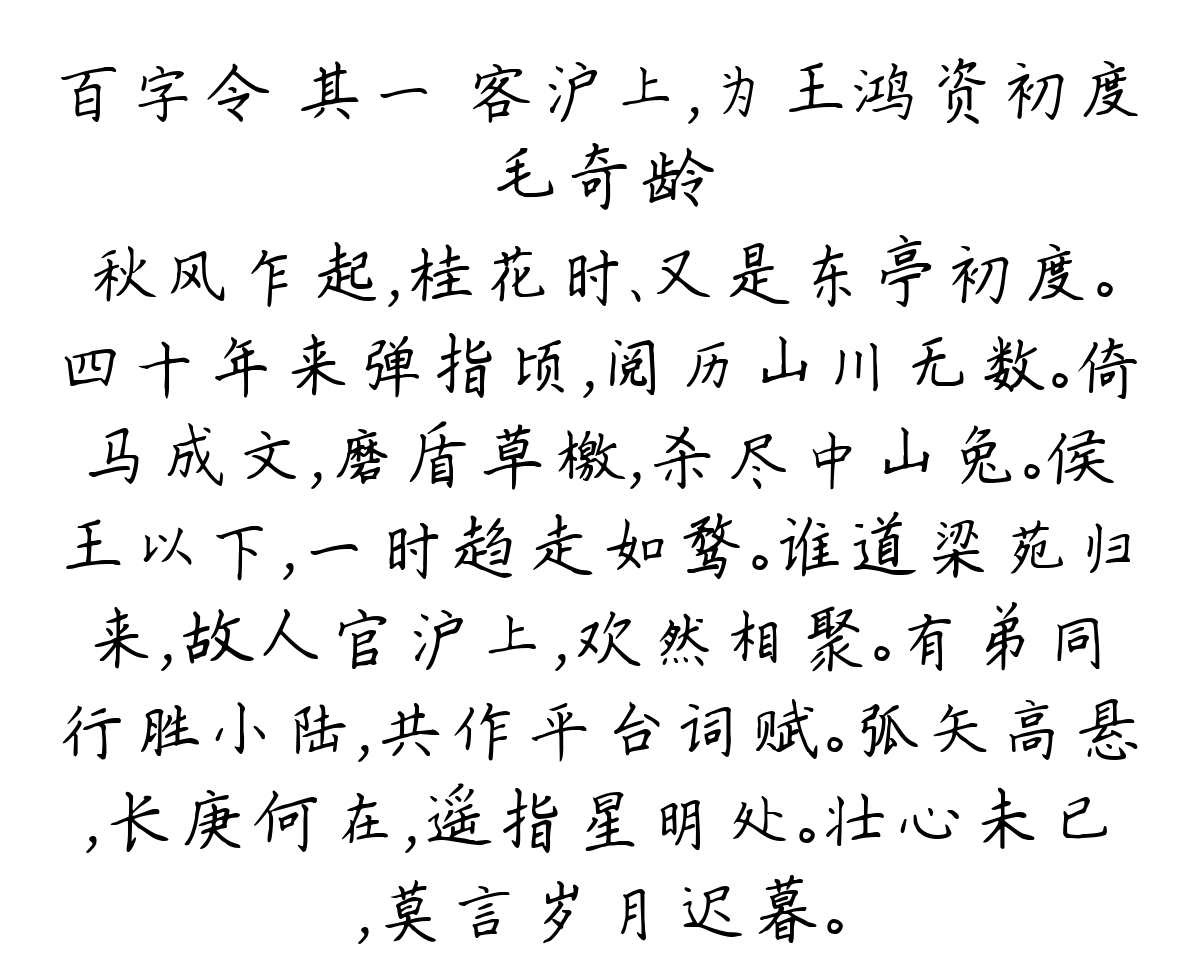 百字令 其一 客沪上,为王鸿资初度
毛奇龄
秋风乍起,桂花时、又是东亭初度。
四十年来弹指顷,阅历山川无数。倚
马成文,磨盾草檄,杀尽中山兔。侯
王以下,一时趋走如鹜。谁道梁苑归
来,故人官沪上,欢然相聚。有弟同
行胜小陆,共作平台词赋。弧矢高悬
,长庚何在,遥指星明处。壮心未已
,莫言岁月迟暮。